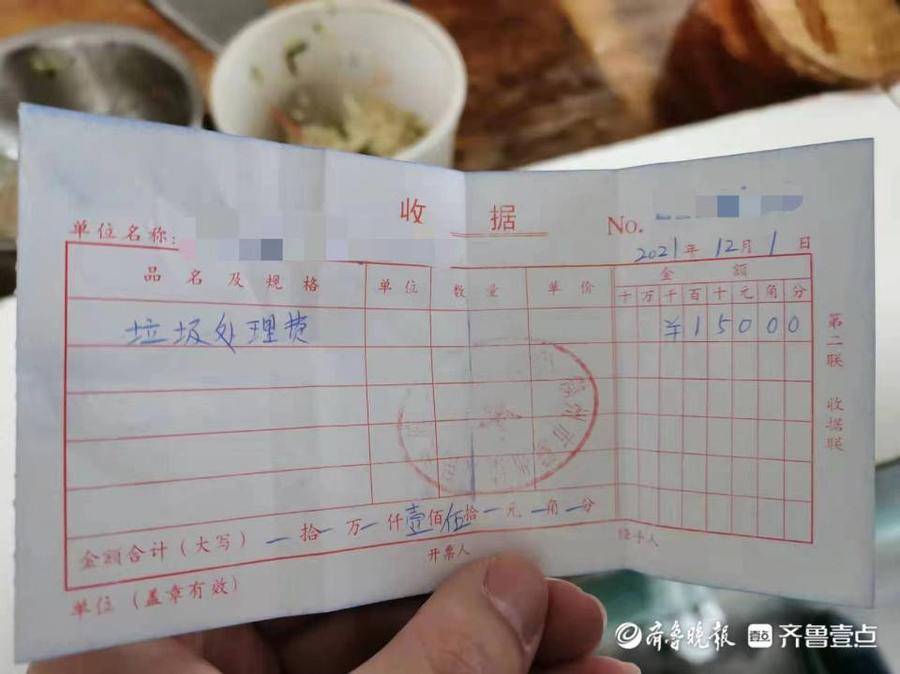 收据
单位名称:
No.
2021年12月1日
品名及规格 单位 数量 单价 金额
十万千百十元角分
垃圾处理费 ¥15000
金额合计(大写) 一拾一万一仟壹佰伍拾一元一角一分
单位(盖章有效)
开票人
经手人
第二联 收据联
齐鲁晚报 齐鲁壹点